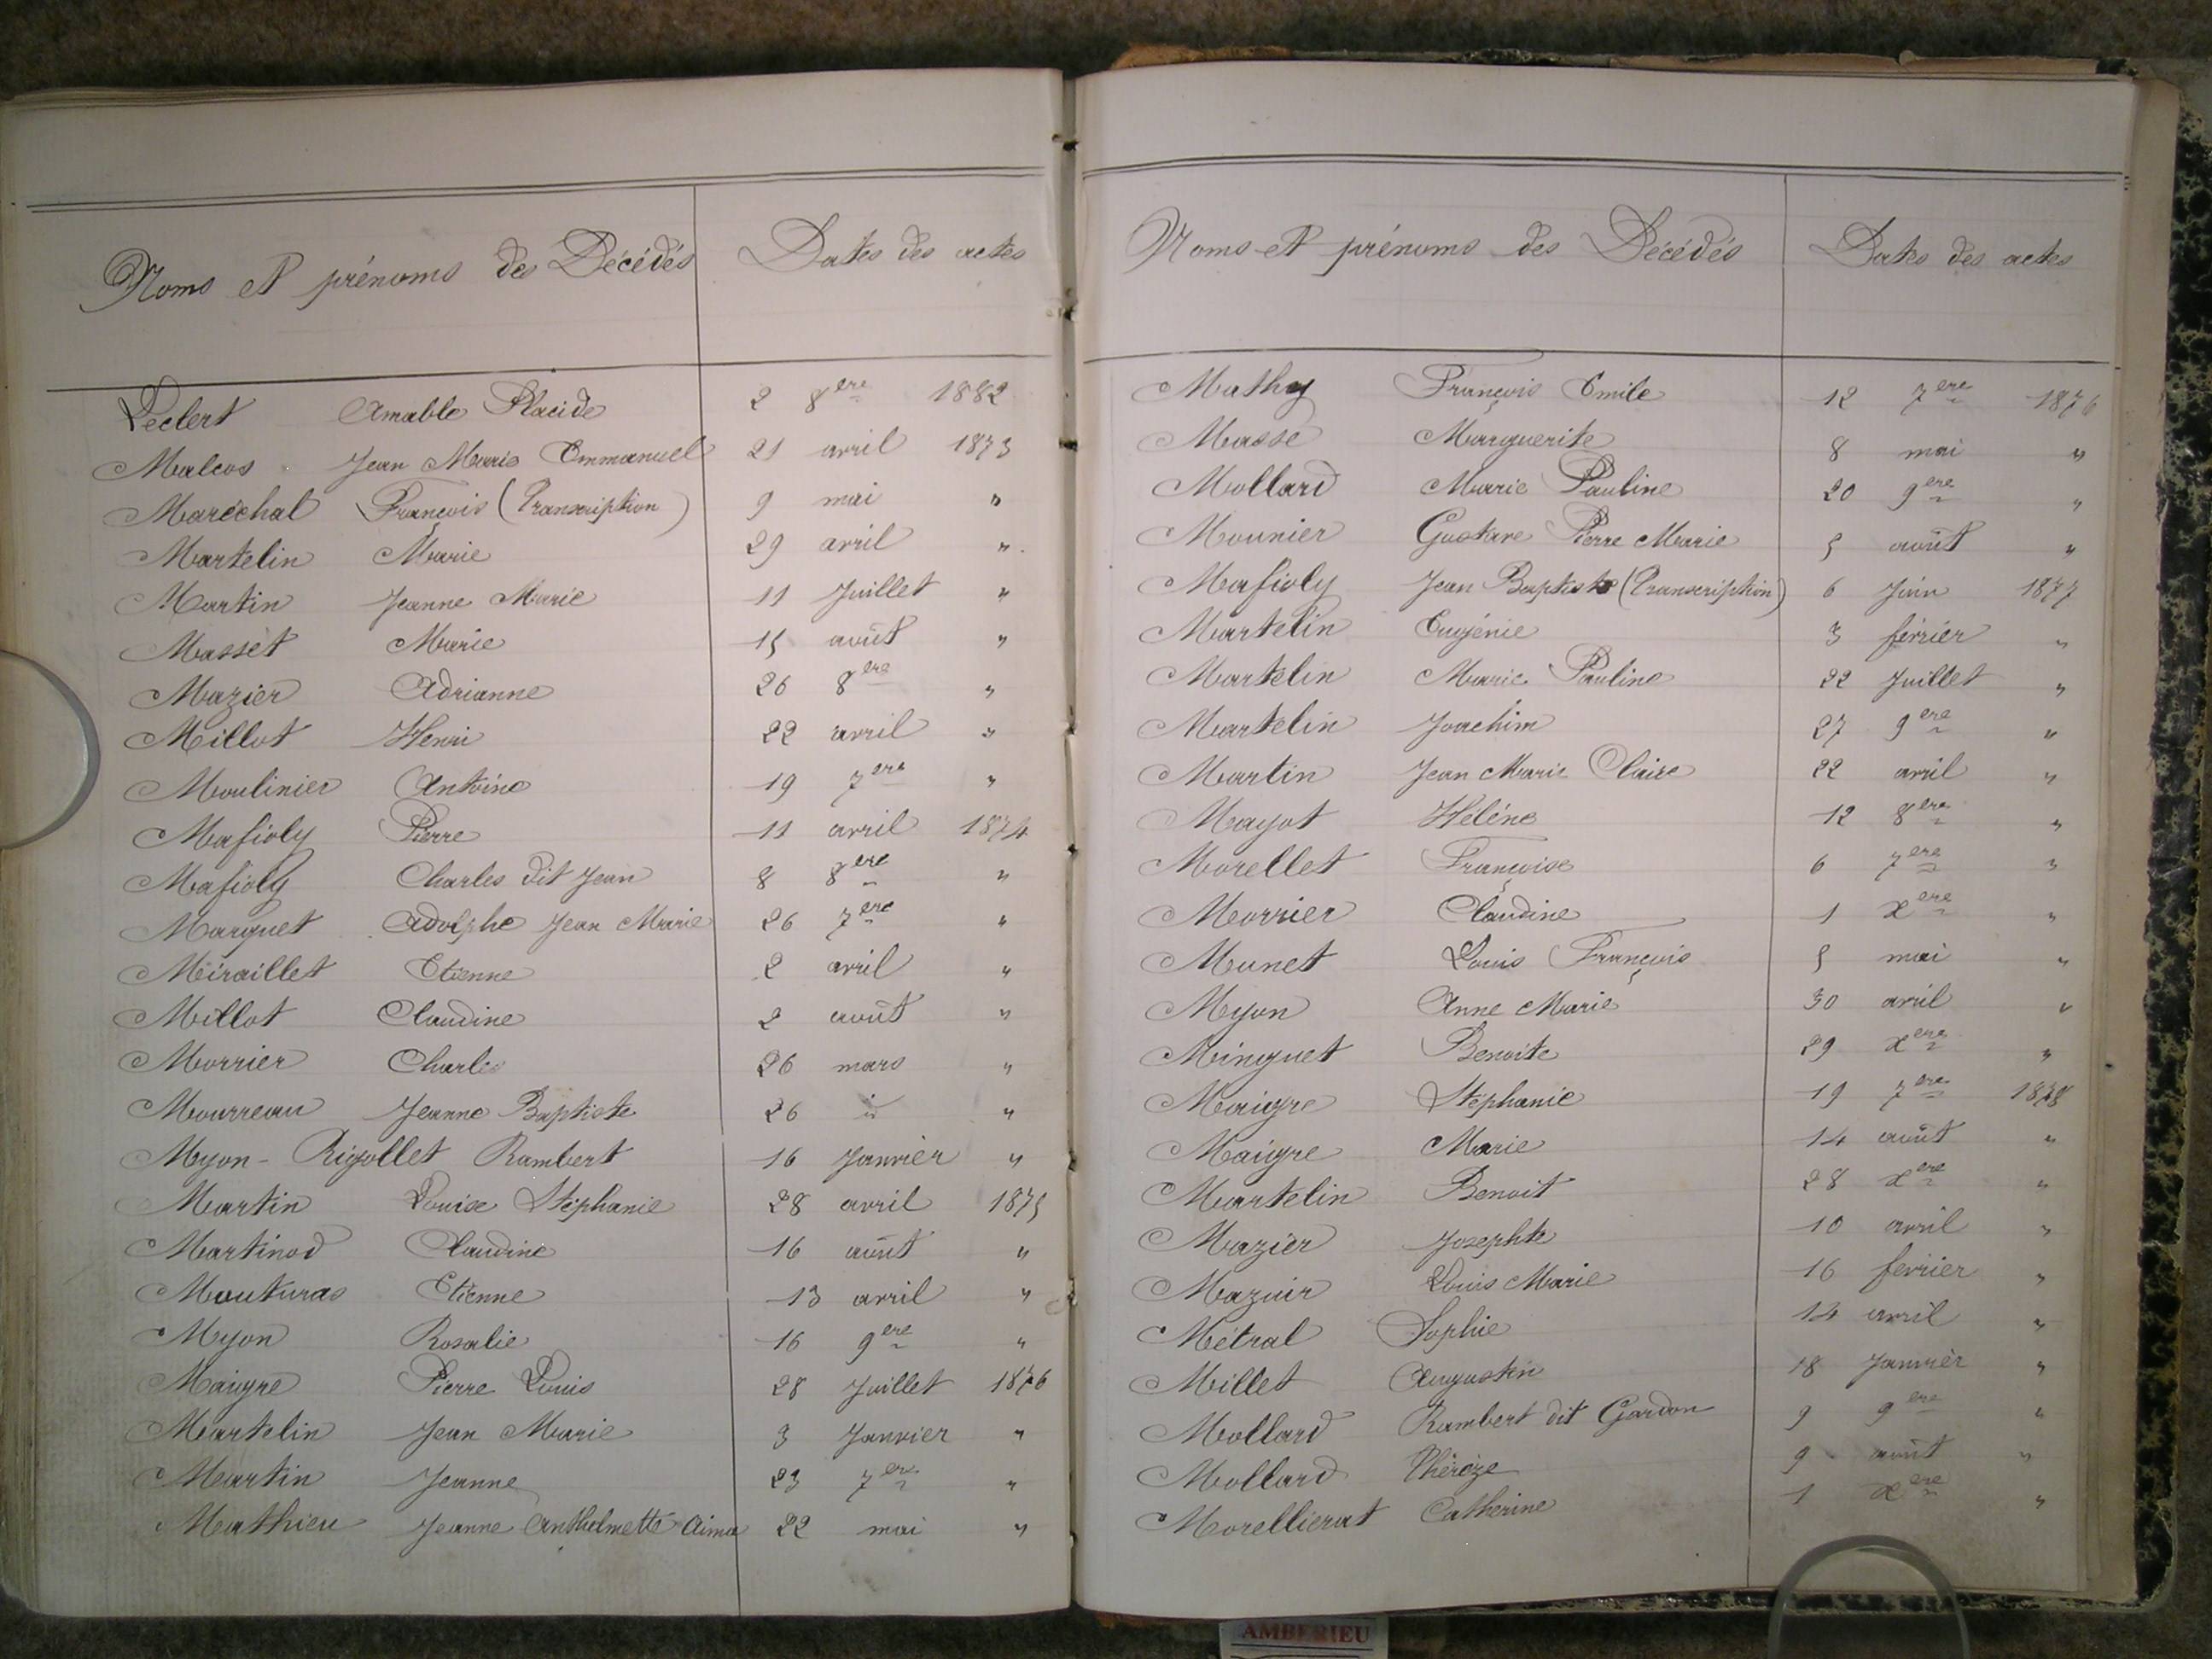 Noms et prénoms des Décédés Dates des actes
Leclert Amable Placide 2 8ere 1882
Malcos Jean Marie Emmanuel 21 avril 1873
Maréchal François (Transcription) 9 mai "
Martelin Marie 29 avril "
Martin Jeanne Marie 11 Juillet "
Masset Marie 15 août "
Mazier Adrianne 26 8ere "
Millot Henri 22 avril "
Moulinier Antoine 19 7ere "
Mafioly Pierre 11 avril 1874
Mafioly Charles dit Jean 8 8ere "
Marguet Adolphe Jean Marie 26 7ere "
Miraillet Etienne 2 avril "
Millot Claudine 2 août "
Morrier Charles 26 mars "
Mourreau Jeanne Baptiste 26 " "
Myon-Rigollet Rambert 16 Janvier "
Martin Louise Stéphanie 28 avril 1875
Martinod Claudine 16 août "
Mouturas Etienne 13 avril "
Myon Rosalie 16 9ere "
Maigre Pierre Louis 28 Juillet 1876
Martelin Jean Marie 3 Janvier "
Martin Jeanne 23 7ere "
Mathieu Jeanne Anthelmette Aimée 22 mai "
Noms et prénoms des Décédés Dates des actes
Mathy François Emile 12 7ere 1876
Masse Marguerite 8 mai "
Mollard Marie Pauline 20 9ere "
Mounier Gustave Pierre Marie 5 août "
Mafioly Jean Baptiste (Transcription) 6 Juin 1877
Martelin Eugénie 3 février "
Martelin Marie Pauline 22 Juillet "
Martelin Joachim 27 9ere "
Martin Jean Marie Claire 22 avril "
Mayot Hélène 12 8ere "
Morellet Françoise 6 7ere "
Morrier Claudine 1 xere "
Munet Louis François 5 mai "
Myon Anne Marie 30 avril "
Minguet Benoite 29 xere "
Maigre Stéphanie 19 7ere 1878
Maigre Marie 14 août "
Martelin Benoit 28 xere "
Mazier Josephte 10 avril "
Mazuir Louis Marie 16 février "
Métral Sophie 14 avril "
Millet Augustin 18 Janvier "
Mollard Rambert dit Gardon 9 9ere "
Mollard Thérèze 9 août "
Morellierat Catherine 1 xere "
AMBERIEU